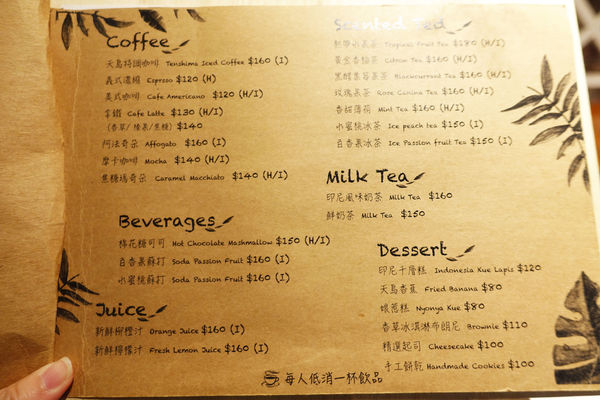 Coffee
天島特調咖啡 Tenshima Iced Coffee $160 (I)
義式濃縮 Esprsso $120 (H)
美式咖啡 Cafe Americano $120 (H/I)
拿鐵 Cafe Latte $130 (H/I)
(香草/榛果/焦糖) $140
阿法奇朵 Affogato $160 (I)
摩卡咖啡 Mocha $140 (H/I)
焦糖瑪奇朵 Caramel Macchiato $140 (H/I)
Beverages
棉花糖可可 Hot Chocolate Mashmallow $150 (H/I)
百香果蘇打 Soda Passion Fruit $160 (I)
水蜜桃蘇打 Soda Passion Fruit $160 (I)
Juice
新鮮柳橙汁 Orange Juice $160 (I)
新鮮檸檬汁 Fresh Lemon Juice $160 (I)
Scented Tea
熱帶水果茶 Tropical Fruit Tea $180 (H/I)
黃金香柚茶 Citron Tea $160 (H/I)
黑醋栗苺果茶 Blackcurrant Tea $160 (H/I)
玫瑰果茶 Rose Canina Tea $160 (H/I)
香甜薄荷 Mint Tea $160 (H/I)
水蜜桃冰茶 Ice peach tea $150 (I)
百香果冰茶 Ice Passion fruit Tea $150 (I)
Milk Tea
印尼風味奶茶 Milk Tea $160
鮮奶茶 Milk Tea $150
Dessert
印尼千層糕 Indonesia Kue Lapis $120
天島香蕉 Fried Banana $80
娘惹糕 Nyonya Kue $80
香草冰淇淋布朗尼 Brownie $110
精選起司 Cheesecake $100
手工餅乾 Handmade Cookies $100
每人低消一杯飲品